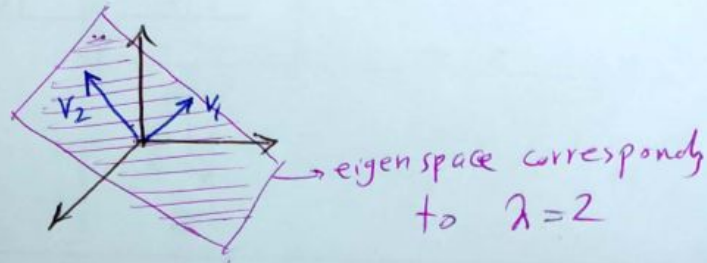 V2
V1
eigenspace corresponds
to λ=2